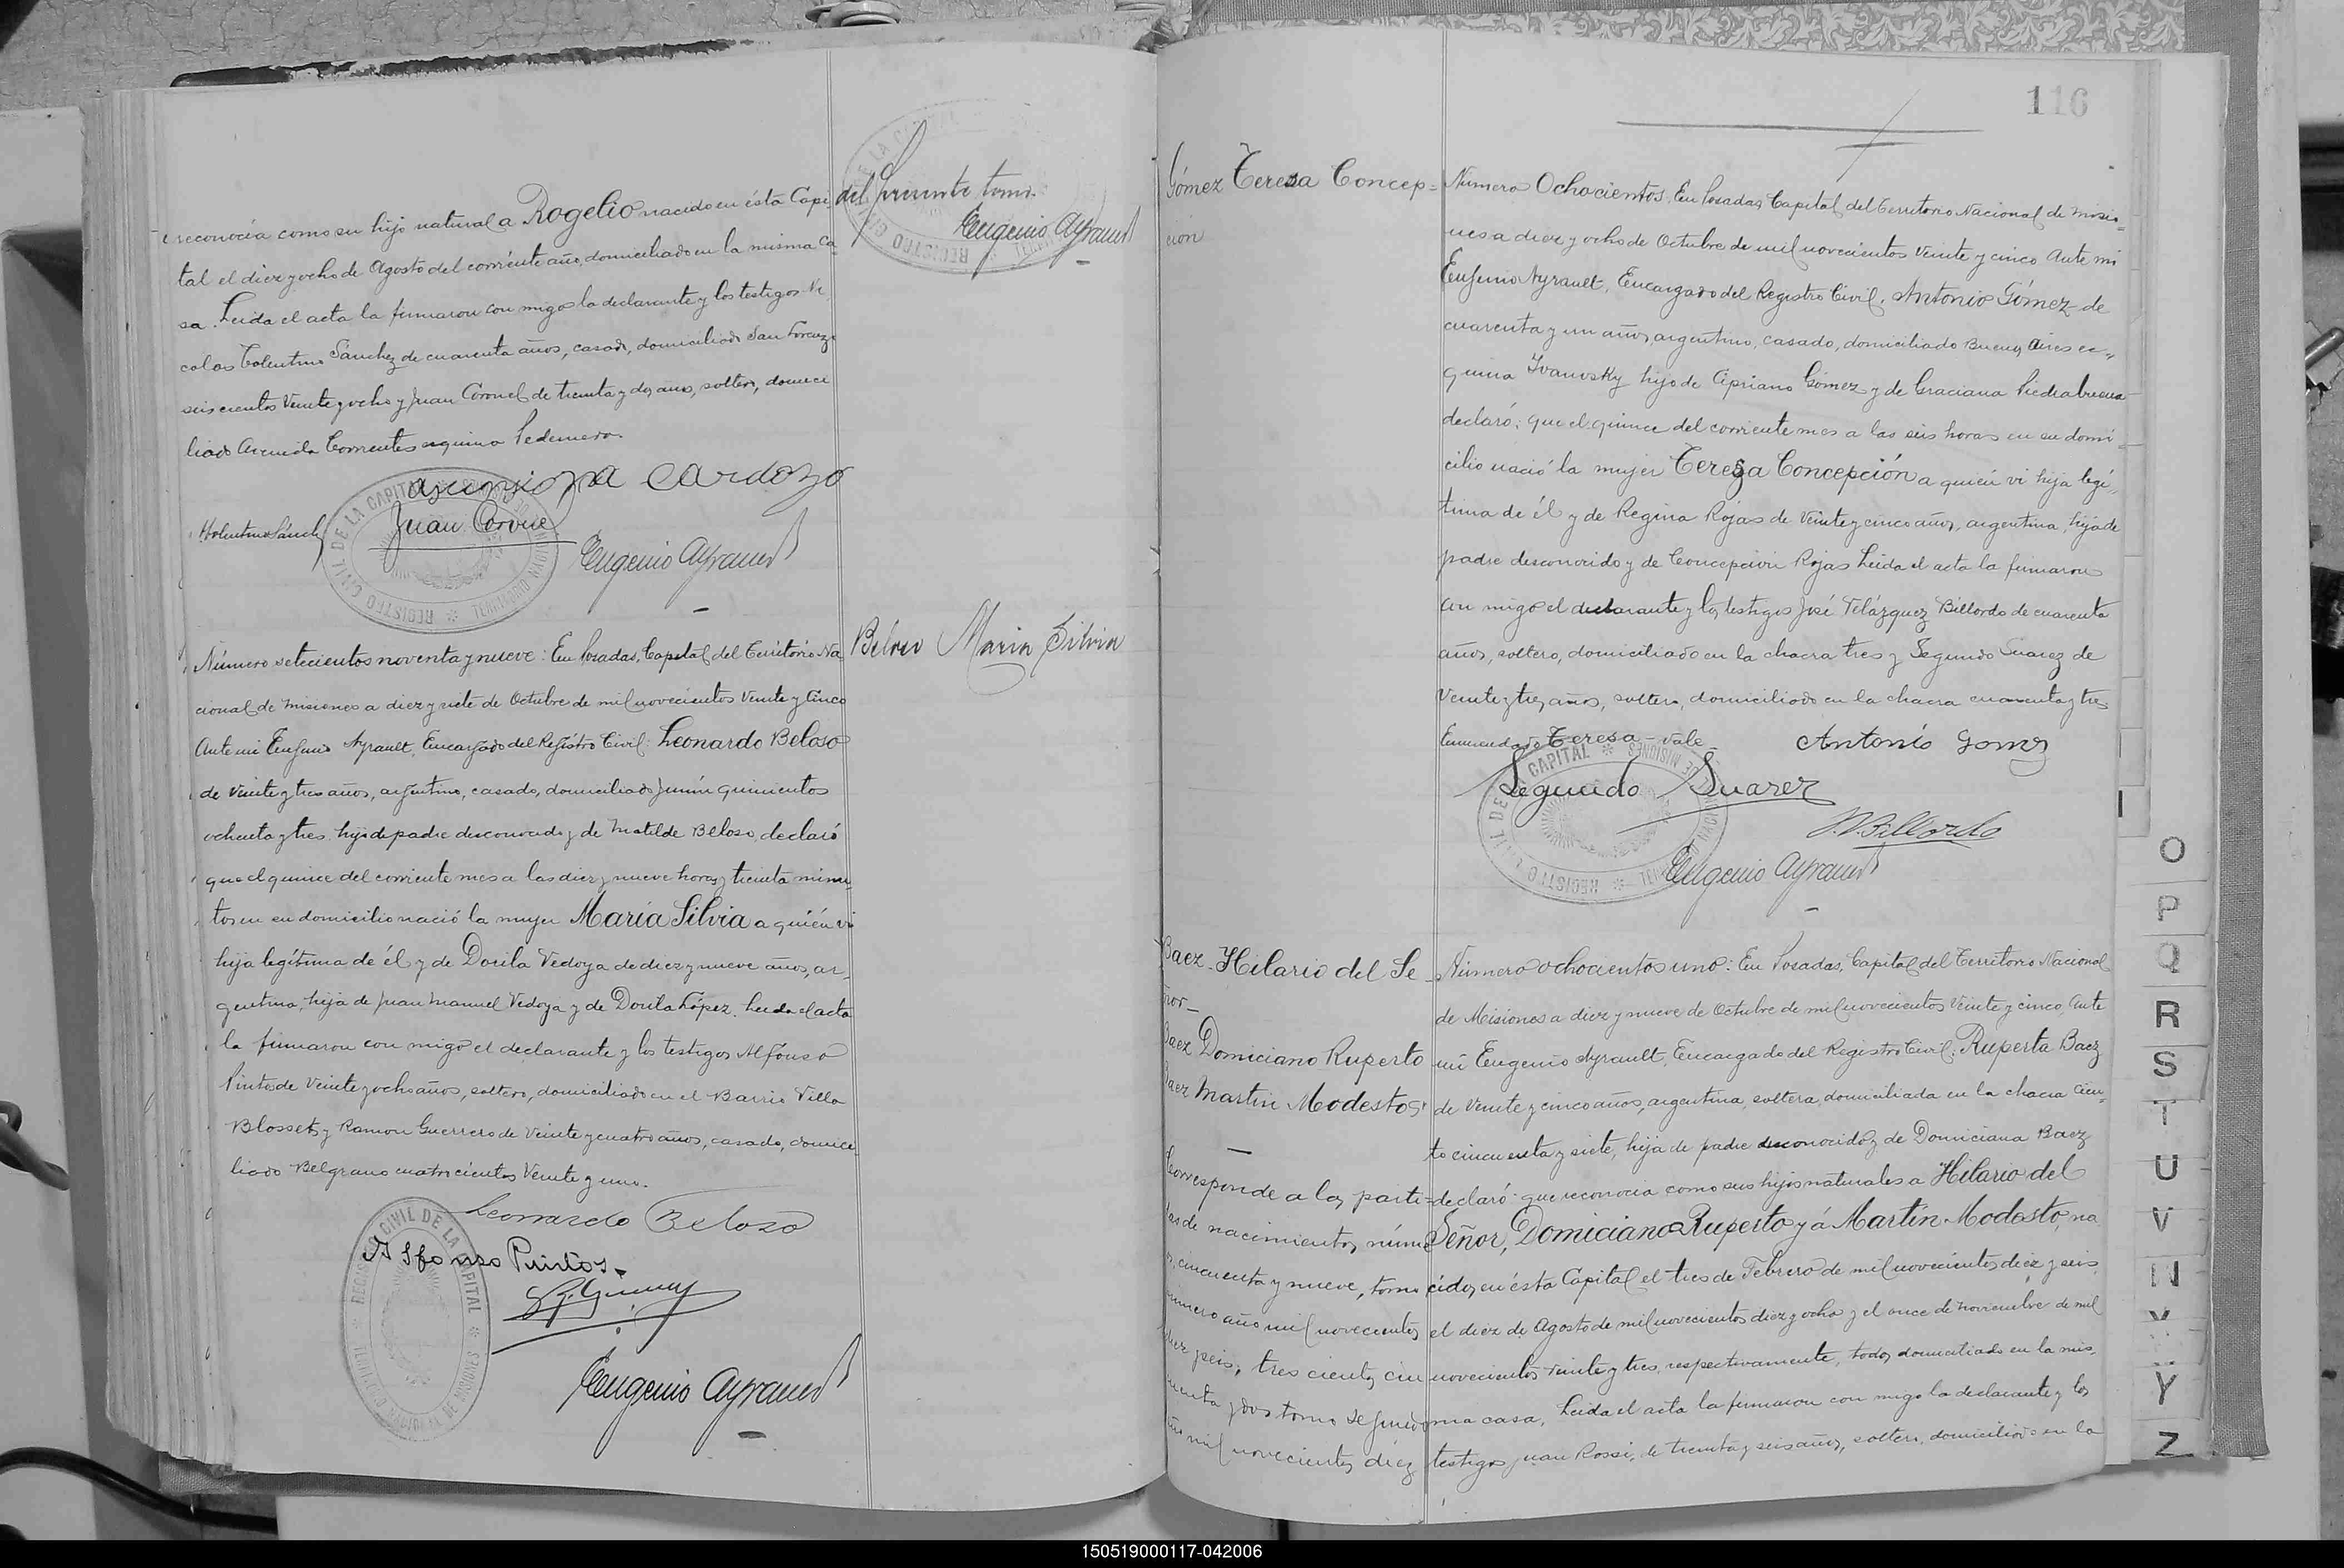 del presente tomo.
Eugenio Ayrault
reconocía como su hijo natural a Rogelio nacido en ésta Capi-
tal el diez y ocho de Agosto del corriente año, domiciliado en la misma ca-
sa. Leida el acta la firmaron con migo la declarante y los testigos Ni
colas Tolentino Sánchez de cuarenta años, casado, domiciliado San Lorenzo
seis cientos Veinte y ocho y Juan Coronel de treinta y dos años, soltero, domici
liado Avenida Corrientes esquina Pedernera.
asunciona cardozo
NTolentino Sánch
Juan Corone
Eugenio Ayrault
REGISTRO CIVIL DE LA CAPITAL
TERRITORIO NACIONAL DE MISIONES
Beloso Maria Silvia
Número setecientos noventa y nueve: En Posadas, Capital del Territorio Na
cional de Misiones a diez y siete de Octubre de mil novecientos Veinte y Cinco
Ante mi Eugenio Ayrault, Encargado del Registro Civil: Leonardo Beloso
de Veinte y tres años, argentino, casado, domiciliado Junín quinientos
ochenta y tres, hijo de padre desconocido y de Matilde Beloso, declaró
que el quince del corriente mes a las diez y nueve horas y treinta minu
tos en su domicilio nació la mujer María Silvia a quién vi
hija legítima de él y de Dorila Vedoya de diez y nueve años, ar-
gentina, hija de Juan Manuel Vedoya y de Dorila López. Leida el acta
la firmaron con migo el declarante y los testigos Alfonso
Pintos de Veinte y ocho años, soltero, domiciliado en el Barrio Villa
Blosset y Ramon Guerrero de Veinte y cuatro años, casado, domici
liado Belgrano cuatrocientos Veinte y uno.
Leonardo Beloso
Alfonso Pintos
Eugenio Ayrault
REGISTRO CIVIL DE LA CAPITAL
TERRITORIO NACIONAL DE MISIONES
116
Gómez Teresa Concep=
cion
Número Ochocientos. En Posadas, Capital del Territorio Nacional de Misio=
nes a diez y ocho de Octubre de mil novecientos Veinte y cinco Ante mi
Eugenio Ayrault, Encargado del Registro Civil. Antonio Gómez de
cuarenta y un años, argentino, casado, domiciliado Buenos Aires es-
quina Ivanosky hijo de Cipriano Gómez y de Graciana Piedrabuena
declaró: que el quince del corriente mes a las seis horas en su domi-
cilio nació la mujer Teresa Concepción a quién vi hija legí-
tima de él y de Regina Rojas de Veinte y cinco años, argentina, hija de
padre desconocido y de Concepción Rojas Leida el acta la firmaron
con migo el declarante y los testigos José Velázquez Billordo de cuarenta
años, soltero, domiciliado en la chacra tres y Segundo Suarez de
Veinte y tres años, soltero, domiciliado en la chacra cuarenta y tres
Enmendado Teresa - Vale
Antonio Gomez
Segundo Suarez
J.V. Billordo
Eugenio Ayrault
REGISTRO CIVIL DE LA CAPITAL
TERRITORIO NACIONAL DE MISIONES
Baez Hilario del Se-
ñor_
Baez Domiciano Ruperto
Baez Martin Modesto
Corresponde a las parti=
das de nacimientos núme
ro, cincuenta y nueve, tomo
primero año mil novecientos
diez y seis; tres cientos cin
cuenta y dos tomo segundo
año mil novecientos diez
Número ochocientos uno: En Posadas, Capital del Territorio Nacional
de Misiones a diez y nueve de Octubre de mil novecientos Veinte y cinco, Ante
mi Eugenio Ayrault, Encargado del Registro Civil: Ruperta Baez
de Veinte y cinco años, argentina, soltera, domiciliada en la chacra Cien-
to cincuenta y siete, hija de padre desconocido y de Domiciana Baez
declaró: que reconocía como sus hijos naturales a Hilario del
Señor, Domiciano Ruperto y á Martín Modesto, na
cidos en ésta Capital el tres de Febrero de mil novecientos diez y seis
el diez de Agosto de mil novecientos diez y ocho y el once de Noviembre de mil
novecientos Veinte y tres, respectivamente, todos domiciliado en la mis-
ma casa. Leida el acta la firmaron con migo la declarante y los
testigos Juan Rossi, de treinta y seis años, soltero, domiciliado en la
O
P
Q
R
S
T
U
V
N
Y
Z
150519000117-042006